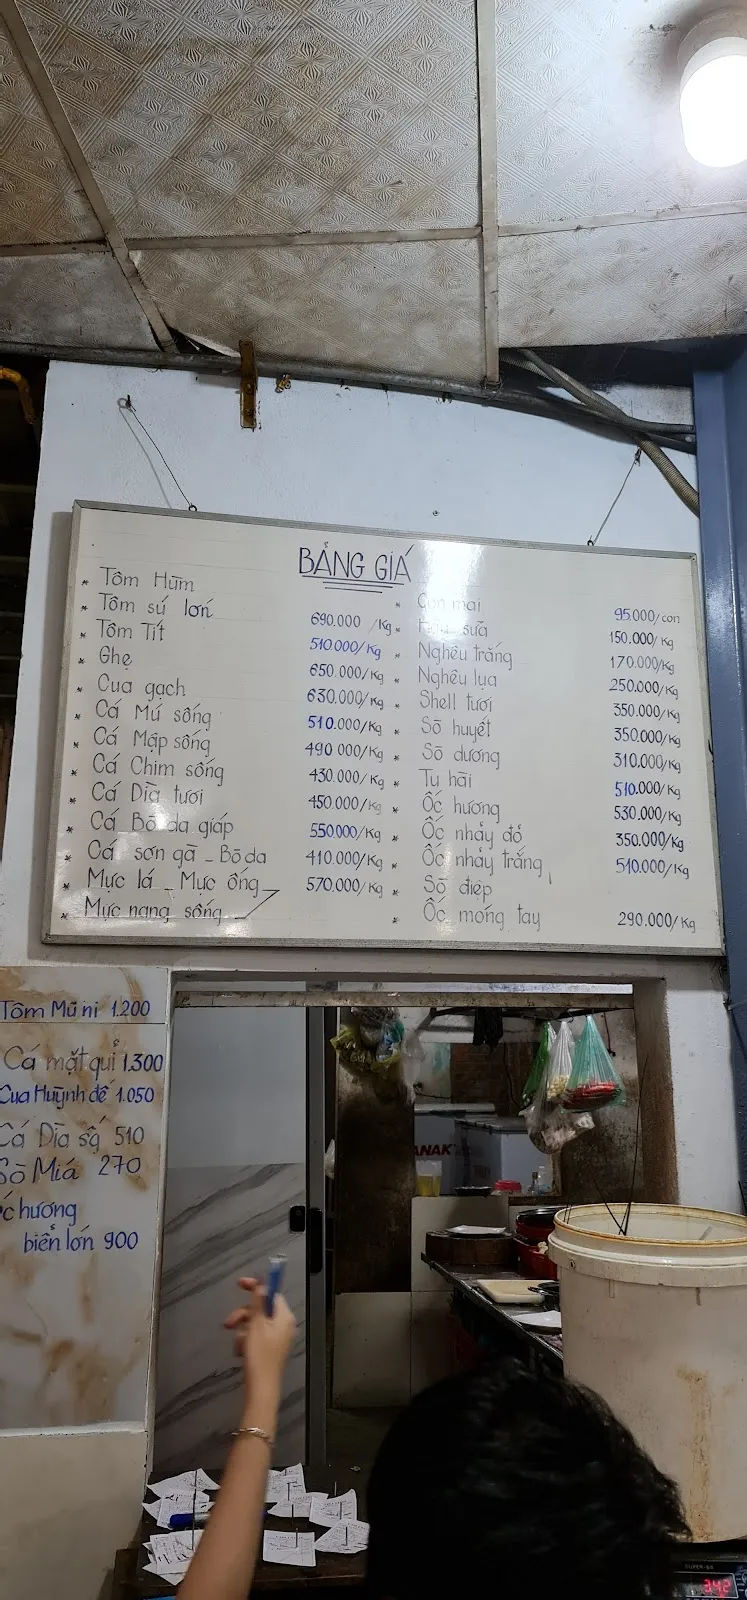 BẢNG GIÁ
* Tôm Hùm
* Tôm sú lớn 690.000 /Kg
* Tôm Tít 510.000/Kg
* Ghẹ 650.000/Kg
* Cua gạch 630.000/Kg
* Cá Mú sống 510.000/Kg
* Cá Mập sống 490.000/Kg
* Cá Chim sống 430.000/Kg
* Cá Dìa tươi 450.000/Kg
* Cá Bò da giáp 550.000/Kg
* Cá sơn gà - Bò da 410.000/Kg
* Mực lá - Mực ống 570.000/Kg
* Mực nang sống
* mai 95.000/con
* sữa 150.000/Kg
* Nghêu trắng 170.000/Kg
* Nghêu lụa 250.000/Kg
* Shell tươi 350.000/Kg
* Sò huyết 350.000/Kg
* Sò dương 310.000/Kg
* Tu hài 510.000/Kg
* Ốc hương 530.000/Kg
* Ốc nhảy đỏ 350.000/Kg
* Ốc nhảy trắng 510.000/Kg
* Sò điệp
* Ốc móng tay 290.000/Kg
Tôm Mũ ni 1.200
Cá mặt quỉ 1.300
Cua Huỳnh đế 1.050
Cá Dìa sọ 510
Sò Miá 270
ốc hương
biển lớn 900
ANAK